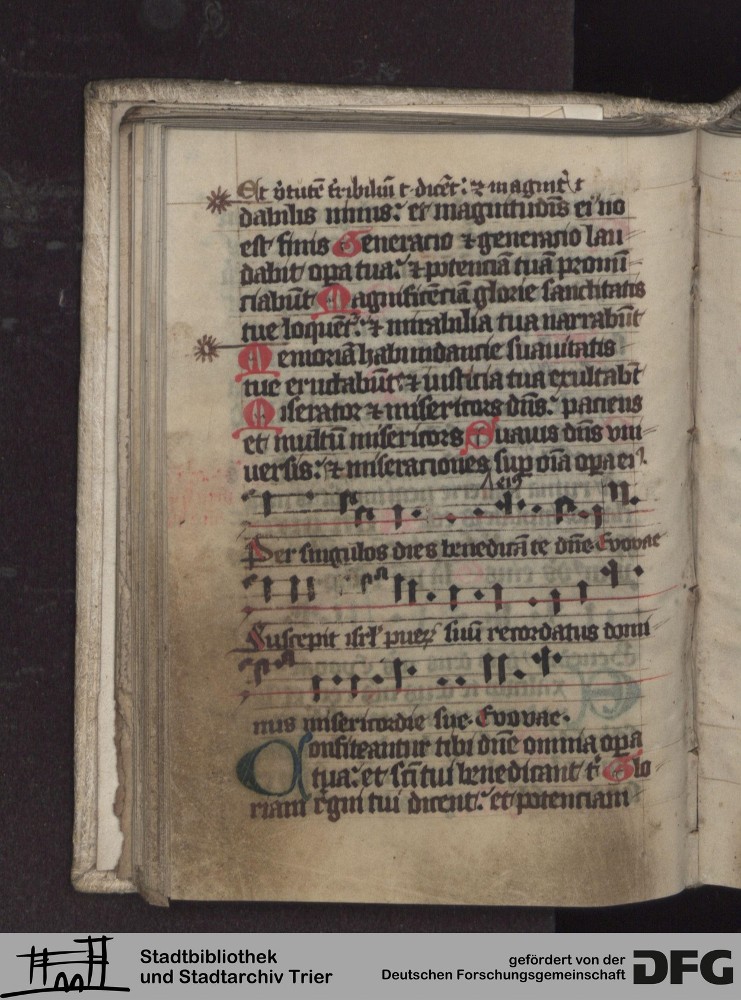 Et v̾tutē t̾ribiliū t. dicēt: ⁊ magnit t
dabilis nimis: et magnitudis ei nō
est finis Generacio ⁊ generatio lau
dabit opa tua: ⁊ potenciā tuā pronū
ciabūt Magnificēciā glorie sanctitatis
tue loquēt: ⁊ mirabilia tua narrabūt
Memoriā habundancie suauitatis
tue eructabūt: ⁊ iusticia tua exultabt
Miserator ⁊ misericors dn̄s: paciens
et multū misericors Suauis dn̄s vni
uersis: ⁊ miseraciones sup om̄a opa eiꝰ.
Per singulos dies benedicā te dn̄e Evovae
Suscepit isrl̄ pueꝝ suū recordatus domi
nus misericordie sue. Evovae.
Confiteantur tibi dn̄e omnia opa
tua: et scī tui benedicant t Glo
riam rͤgni tui dicent: et potenciam
Stadtbibliothek
und Stadtarchiv Trier
gefördert von der
Deutschen Forschungsgemeinschaft
DFG